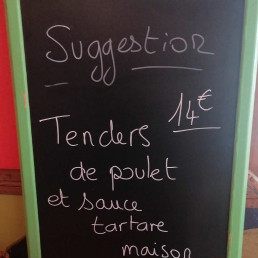 Suggestion
14€
Tenders
de poulet
et sauce
tartare
maison